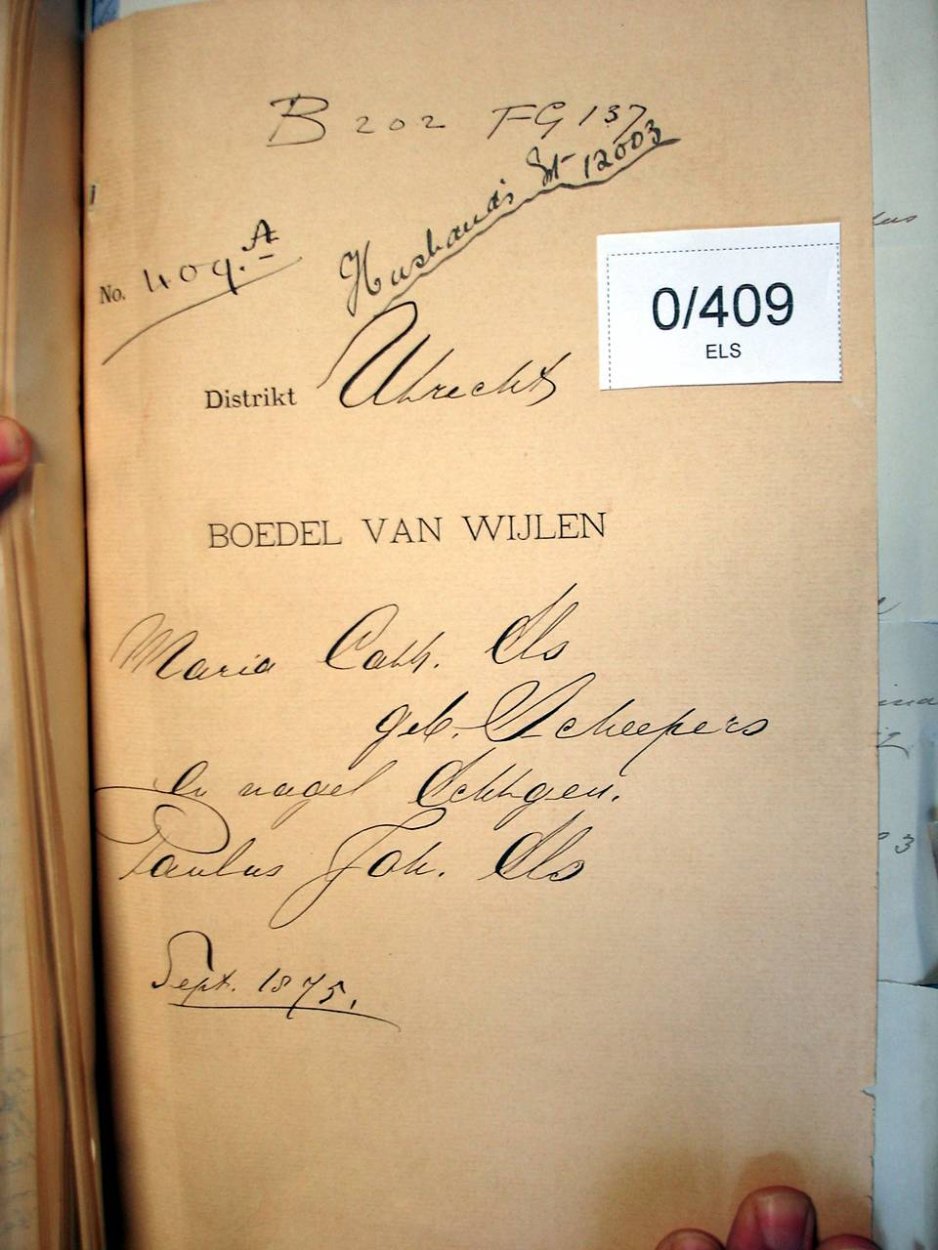 B 202 FG 137
Husband's St 12003
No. 409.A
0/409
ELS
Distrikt Utrecht
BOEDEL VAN WIJLEN
Maria Cath. Els
geb. Scheepers
en nagel Echtgen.
Paulus Joh. Els
Sept. 1875.